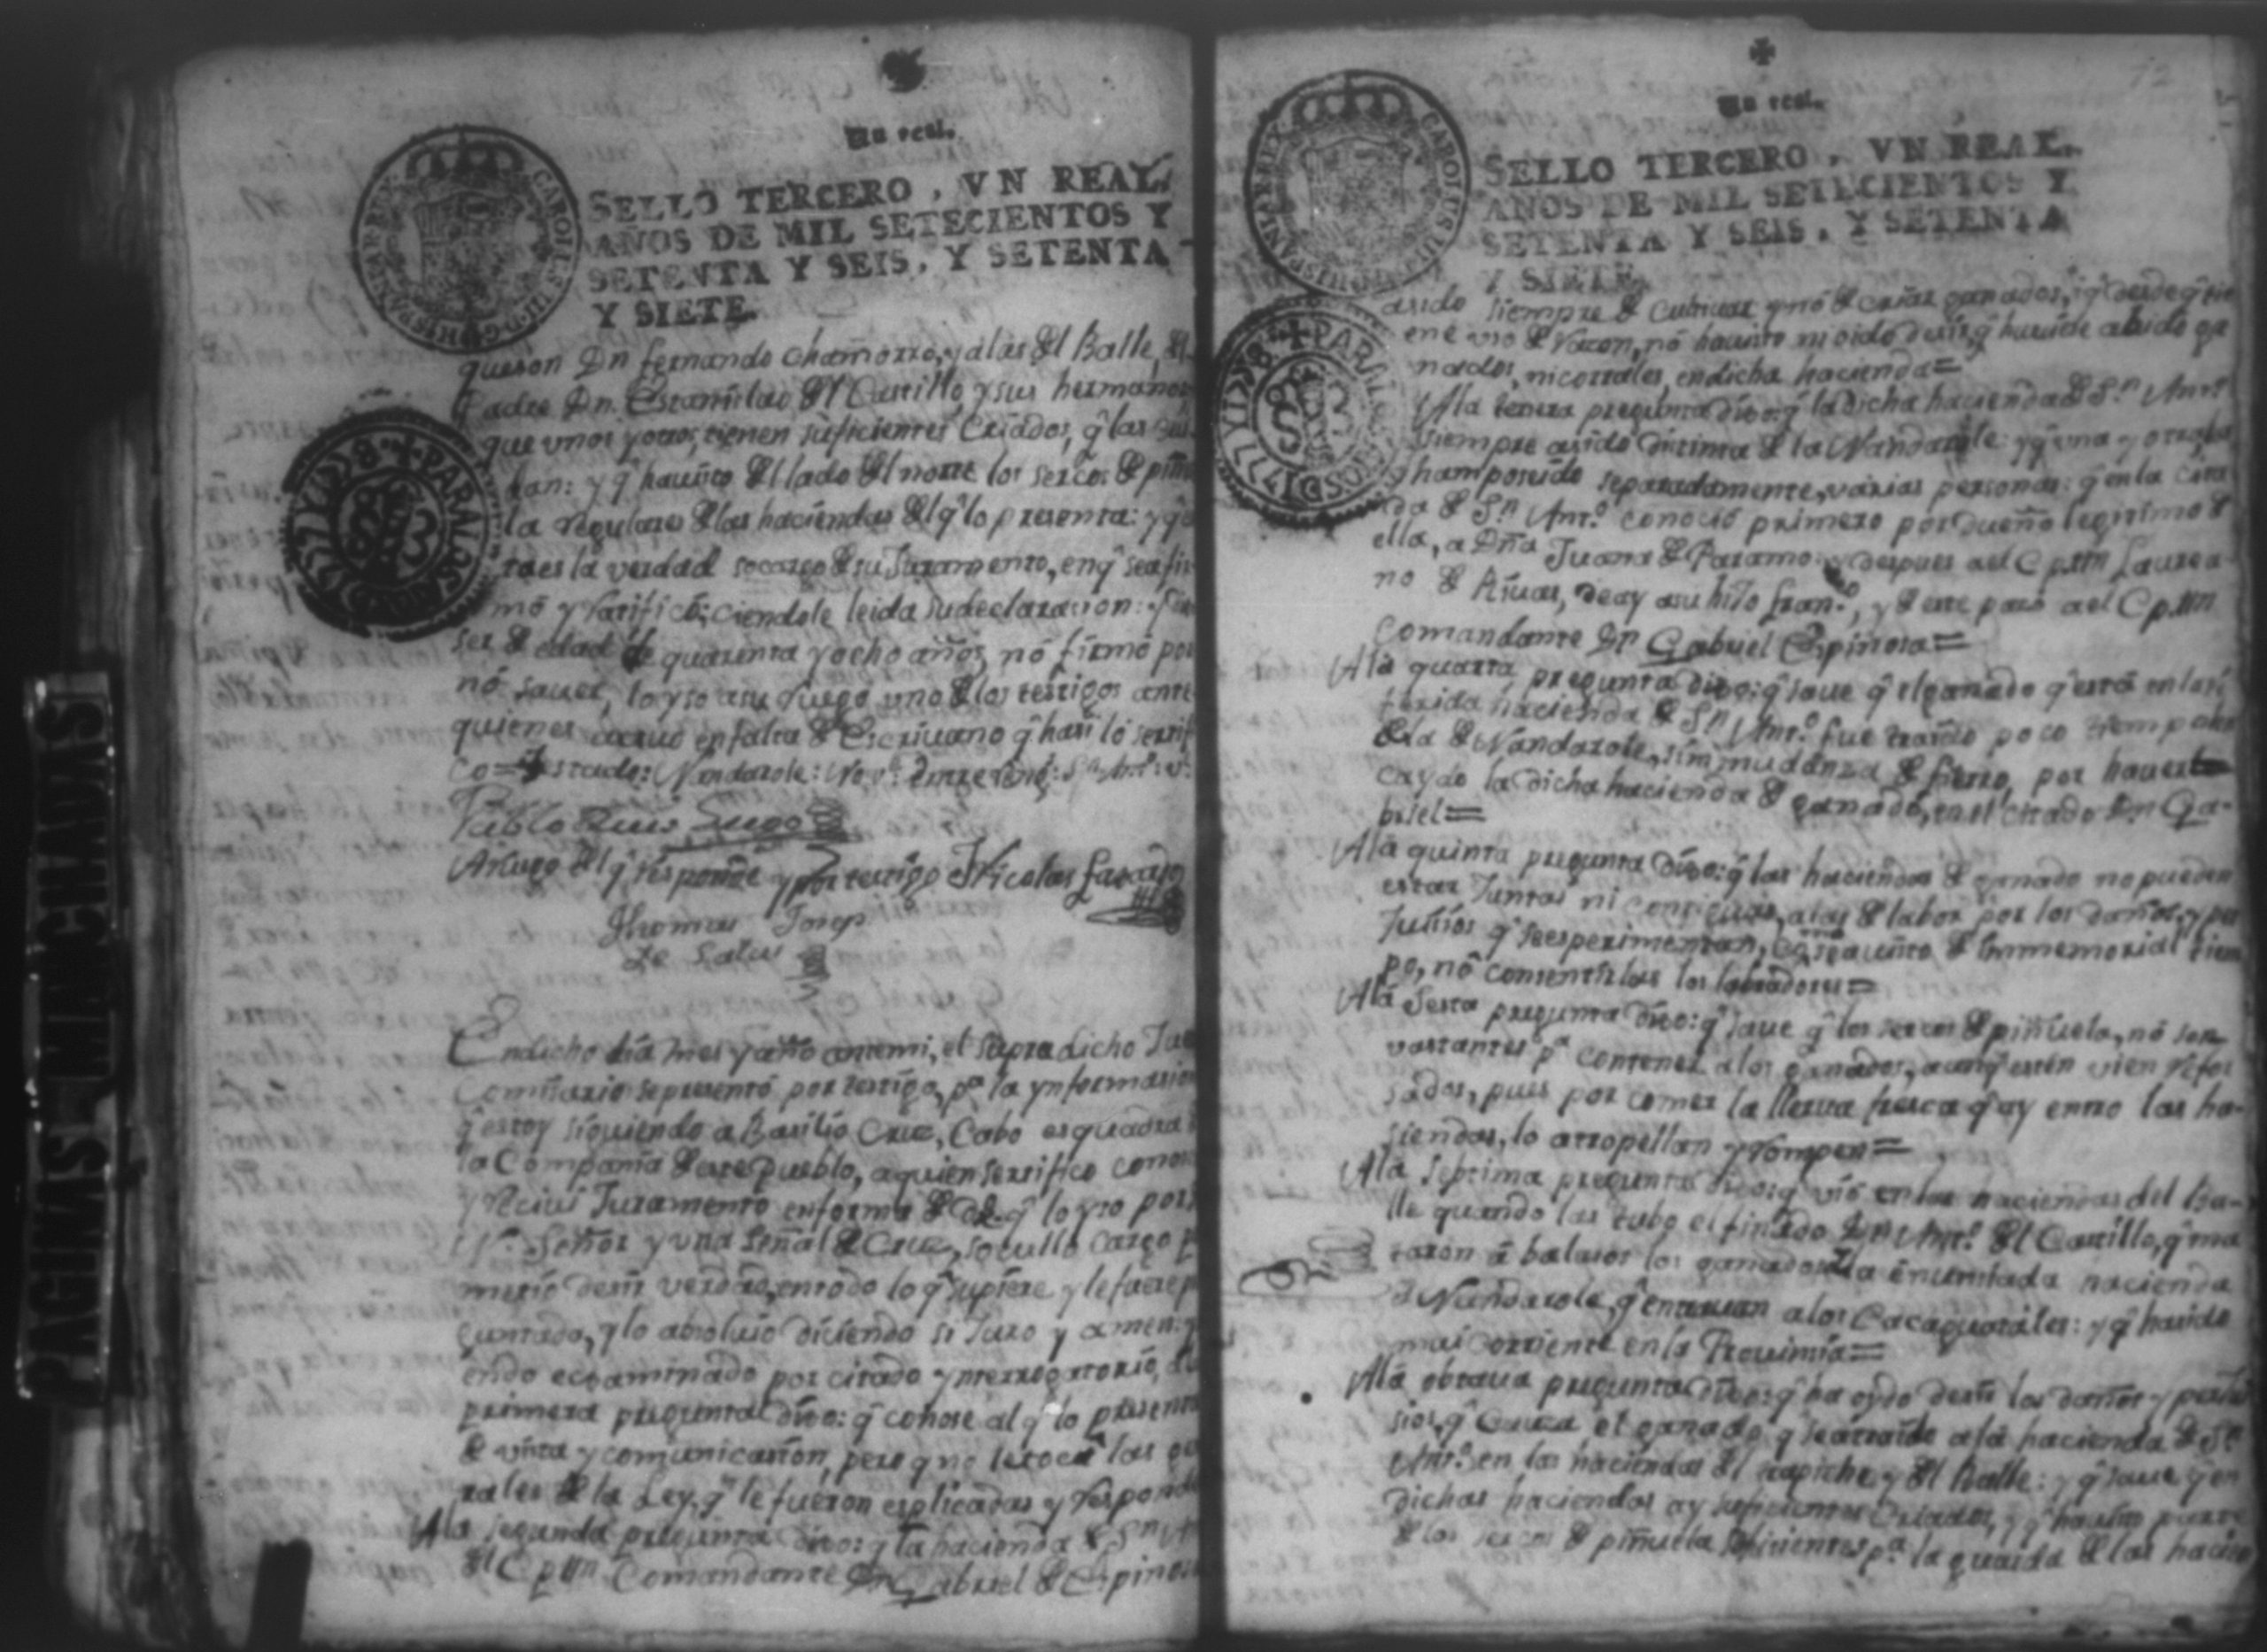 Un real.
SELLO TERCERO, VN REAL,
AÑOS DE MIL SETECIENTOS Y
SETENTA Y SEIS, Y SETENTA
Y SIETE.
CAROLUS III D G HISPANIAR REX
PARA LOS AÑOS D 1777 Y 1778
queron Dn fernando chamorro, y alas del Balle, el
Padre Dn. Estanislao del Castillo y sus hermanos
que unos y otros tienen suficientes Criados, q̃ las
dan: y q̃ ha visto del lado del norte los sercos de piñu
la regulares de las haciendas del q̃ lo presenta: y q̃
ta es la verdad socargo de su Juramento, en q̃ se afir
mó y ratificó; ciendole leida su declarasion:
ser de edad de quarenta y ocho años, nó firmó por
nó saver, lo yso asu ruego uno de los testigos ante
quienes actuo en falta de Escrivano q̃ hasi lo sertifi
co= Nandarole:
Pablo Ruis Lugo
Aruego del q̃ responde y por testigo Nicolas fajardo
Thomas Josep
de Salas
En dicho dia mes y año antemi, el supra dicho Jues
Comisario se presentó por testigo, pa. la ynformasion
q̃ estoy siguiendo a Basilio Cruz, Cabo esquadra d
la Compañia de este Pueblo, a quien sertifico conos
y recivi Juramento en forma de dr. q̃ lo yso por
N. Señor y una señal de Cruz, so cullo cargo p
metió desir verdad, en todo lo q̃ supiere y le fuere p
guntado, y lo absolvio diciendo si Juro y amen: y
endo ecsaminado por citado ynterrogatorio, a la
primera pregunta dixo: q̃ conose al q̃ lo presenta
de vista y comunicasion, pero q no le tocan las ge
rales de la Ley, q̃ le fueron esplicadas y responde
A la segunda pregunta dixo: q̃ la hacienda de Sn
del Cptan Comandante Dn Gabriel de Espinosa
Un real.
SELLO TERCERO, VN REAL,
AÑOS DE MIL SETECIENTOS Y
SETENTA Y SEIS, Y SETENTA
Y SIETE.
CAROLUS III D G HISPANIAR REX
PARA LOS AÑOS D 1777 Y 1778
asido siempre de cultivar y nó de criar ganados, y q̃ desde q̃ ti
ene uso de razon, nó ha visto ni oido desir q̃ huviese abido ga
nados, ni corrales, en dicha hacienda=
A la tersera pregunta dixo: q̃ la dicha hacienda de Sn. Anto.
siempre a sido distinta de la Nandarole: y q̃ una y otra
han poseido separadamente, varias personas: q̃ en la cita
da de Sn. Anto. conosió primero por dueño legitimo de
ella, a Dña Juana de Paramo: y despues a el Cptan Laurea
no de Aivar, de ay a su hijo Franco., y de este pasó a el Cptan
Comandante Dn Gabriel Espinosa=
A la quarta pregunta dixo: q̃ save q̃ el ganado q̃ está en la re
ferida hacienda de Sn Anto. fue traido poco tiempo
de la de Nandarole, sin mudansa de fierro, por haver
caydo la dicha hacienda de ganado, en el citado Dn Ga-
briel=
A la quinta pregunta dixo: q̃ las haciendas de ganado no pueden
estar Juntas ni contiguas, alas de labor por los daños, y per
Juisios q̃ se esperimentan, de immemorial tiem
po, nó consentirlas los labradores=
A la sesta pregunta dixo: q̃ save q̃ los sercos de piñuela, nó son
vastantes pa. contener a los ganados, aunq̃ estén vien refor
sados, pues por comer la llerva fresca q̃ ay entro las ha-
siendas, lo atropellan y rompen=
A la septima pregunta dixo: q̃ vió en las haciendas del Ba-
lle quando las tubo el finado Dn Anto. del Castillo, q̃ ma
taron á balasos los ganados de la enunciada hacienda
de Nandarole, q̃ entravan a los Cacaguatales: y q̃ ha sido
mui corriente en la Provincia=
A la obtava pregunta dixo: q̃ ha oydo desir los daños y perJui
sios q̃ causa el ganado q̃ se a traido a la hacienda de Sn
Anto. en las haciendas del trapiche y del Balle: y q̃ save q̃ en
dichas haciendas ay suficientes criados, y q̃ ha visto parte
de los sercos de piñuela suficientes pa. la guarda de las hacien